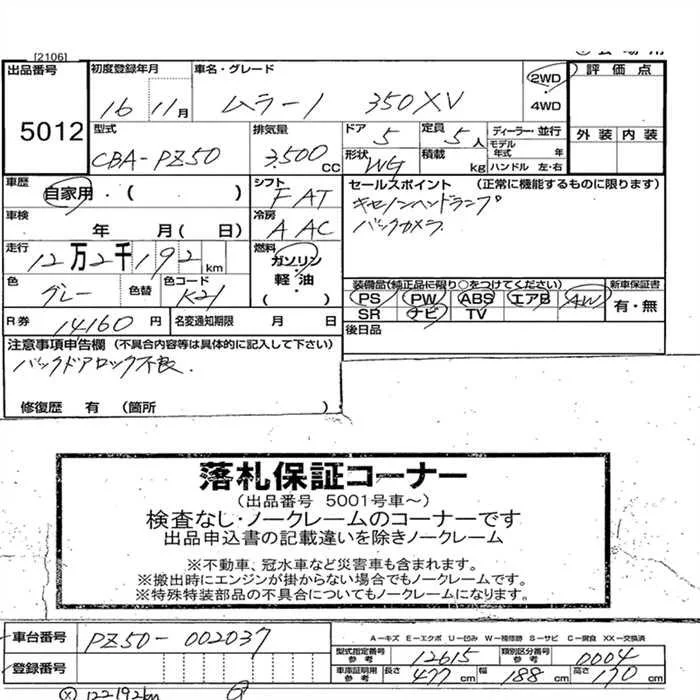 [2106]
出品番号 初度登録年月 車名・グレード 2WD 評価点
5012 16 11月 ムラーノ 350XV 4WD
型式 排気量 ドア 5 定員 5人 ディーラー・並行 外装 内装
モデル年式 年
CBA-PZ50 3,500 CC 形状 WG 積載 kg ハンドル 左・右
車歴 自家用・( ) シフト FAT セールスポイント (正常に機能するものに限ります)
車検 年 月( 日) 冷房 AAC キセノンヘッドランプ
バックカメラ
走行 12万2千192km 燃料 ガソリン・軽油・( )
色 グレー 色替 色コード K21 装備品(純正品に限り○をつけてください) 新車保証書
PS PW ABS エアB AW 有・無
SR ナビ TV
R券 14160円 名変通知期限 月 日 後日品
注意事項申告欄 (不具合内容等は具体的に記入して下さい)
バックドアロック不良
修復歴 有 (箇所 )
落札保証コーナー
(出品番号 5001号車~)
検査なし・ノークレームのコーナーです
出品申込書の記載違いを除きノークレーム
※不動車、冠水車など災害車も含まれます。
※搬出時にエンジンが掛からない場合でもノークレームです。
※特殊特装部品の不具合についてもノークレームになります。
車台番号 PZ50-002037 A-キズ E-エクボ U-凹み W-補修跡 S-サビ C-腐食 XX-交換済
型式指定番号 参考 12615 類別区分番号 参考 0004
登録番号 車庫証明用 参考 長さ 477cm 幅 188cm 高さ 170cm
122192km